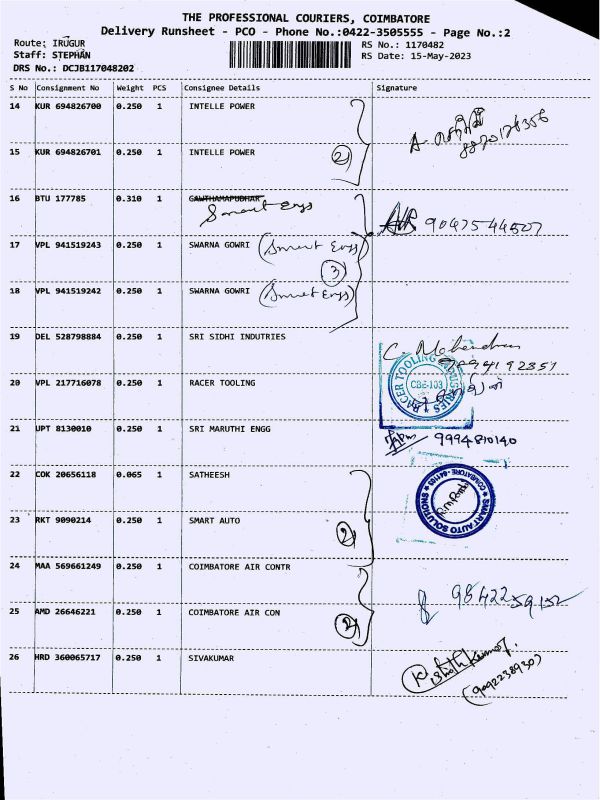 THE PROFESSIONAL COURIERS, COIMBATORE
Delivery Runsheet - PCO - Phone No.:0422-3505555 - Page No.:2
Route: IRUGUR RS No.: 1170482
Staff: STEPHAN RS Date: 15-May-2023
DRS No.: DCJB117048202
S No Consignment No Weight PCS Consignee Details Signature
14 KUR 694826700 0.250 1 INTELLE POWER
8870178356
15 KUR 694826701 0.250 1 INTELLE POWER 2
16 BTU 177785 0.310 1 GAWTHAMAPUDHAR
Smart Engs
9047544507
17 VPL 941519243 0.250 1 SWARNA GOWRI (Smart Engs)
3
18 VPL 941519242 0.250 1 SWARNA GOWRI (Smart Engs)
19 DEL 528798884 0.250 1 SRI SIDHI INDUTRIES C. Mahendran
9994192357
20 VPL 217716078 0.250 1 RACER TOOLING RACER TOOLING INDUSTRIES CBE-103
21 UPT 8130010 0.250 1 SRI MARUTHI ENGG 9994810140
22 COK 20656118 0.065 1 SATHEESH
SMART AUTO SOLUTIONS COIMBATORE
23 RKT 9090214 0.250 1 SMART AUTO 2
24 MAA 569661249 0.250 1 COIMBATORE AIR CONTR
9842259152
25 AMD 26646221 0.250 1 COIMBATORE AIR CON 2
26 HRD 360065717 0.250 1 SIVAKUMAR
(9092238930)